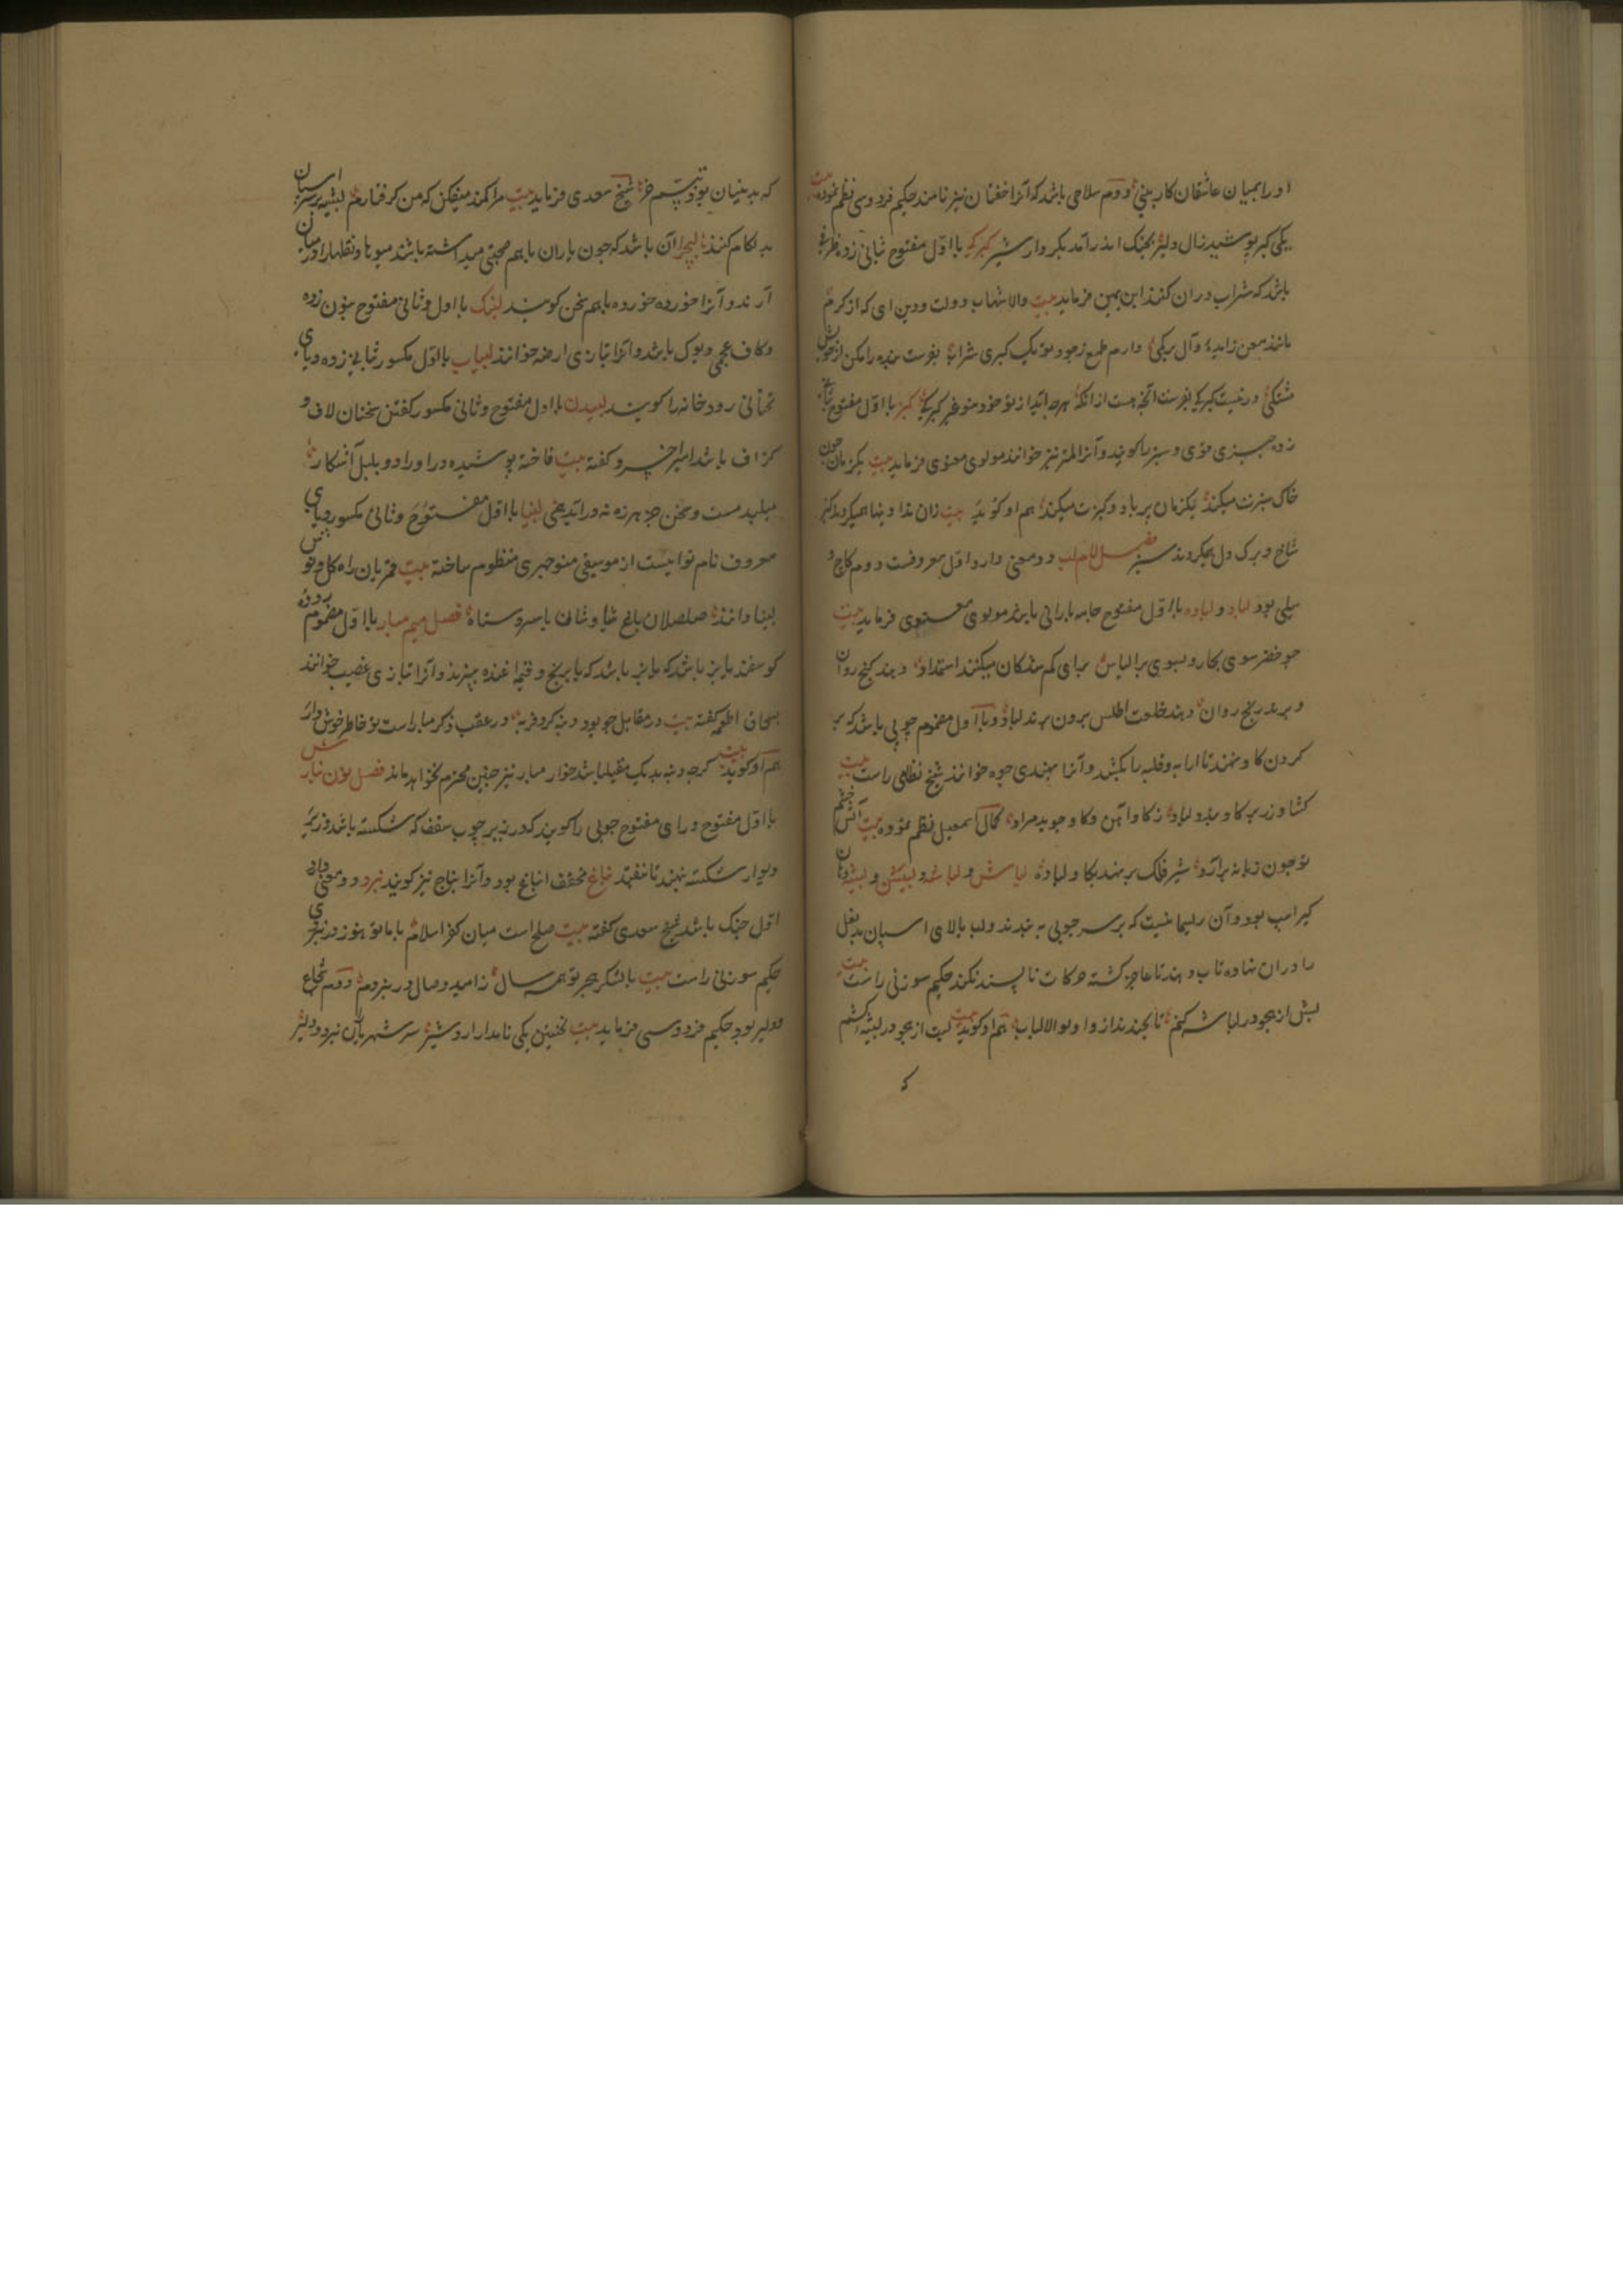 او را بمیان عاشقان کار بینی دوم سلاحی باشد که آنرا خفتان نیز نامند حکیم فردوسی نظم نموده بیت
یکی کبر پوشید زال دلیر بجنک اندر آمد بکردار شیر کبرکه با اول مفتوح بثانی زده ظرفی
باشد که شراب دران کنند ابن یمین فرماید بیت والا شهاب دولت ودین ای که از کرم
مانند معن زایدهٔ وآل برمکی دارم طمع زجود تو یک کبرکی شراب بفرست بنده را مکن از خویش
مشتکی ور نیست کبرکی بفرست آنچه هست ازانکه هرچه آید از تو خود نبود غیر کبرکی کبز با اول مفتوح بثانی
زده چیزی قوی وسبز را کویند وآنرا نیز خوانند مولوی معنوی فرماید بیت یکزمان چون
خاک سبزت میکند یکزمان پر باد وکبزت میکند هم او کوید بیت زان ندا دینها همیکردند کبز
شاخ وبرک دل همیکردند سبز فصل لام لب دو معنی دارد اول معروفست دوم کاج و
سیلی بود لباد و لباده با اول مفتوح جامه بارانی باشد مولوی معنوی فرماید بیت
چو خضر سوی بحار وبسوی بر الیاس برای کم شدکان میکنند استمداد دهند کنج روان
و برند رنج روان دهند خلعت اطلس برون برند لباد وبا اول مضموم چوبی باشد که بر
کردن کاو نهند تا ارابه وقلبه را بکشد وآنرا بهندی جوه خوانند شیخ نظامی راست بیت
کشاورز بر کاو بندد لباد ز کاو آهن وکاو جوید مراد کمال اسمعیل نظم نموده بیت آتش خشم
تو چون زبانه برآرد شیر فلک بر نهد بکا و لباده لباش و لباشه و لبیشن و لبیشه دهان
کیر اسپ بود وآن ریسمانیست که بر سر چوبی به بندند ولب بالای اسپان بد نعل
را دران نهاده تاب دهند تا عاجز کشته حرکات ناپسند نکند حکیم سوزنی راست بیت
لبش از هجو در لباشه کنم تا بخندند ازو اولوالالباب هم او کوید بیت لبت از هجو در لبیشه کشم
که
که بدینسان تو شیخ سعدی فرماید بیت مرا کمند میفکن که من کرفتارم لبیشه بر سر اسپان
بد لکام کنند لبچرا آن باشد که چون یاران باهم صحبتی میداشته باشند میوها ونقلها در میان
آرند وآنرا خورده خورده باهم سخن کویند لبنک با اول وثانی مفتوح بنون زده
وکاف عجمی دیوک باشد وآنرا بتازی ارضه خوانند لبیاب با اول مکسور بثانی زده ویای
تحتانی رودخانه را کویند لبیدن با اول مفتوح وثانی مکسور کفتن سخنان لاف و
کزاف باشد امیر خسرو کفته بیت فاخته پوشیده در اوراد وبلبل آشکار
میلبد مست وسخن جز هرزه نه در آید همی لبینا با اول مفتوح وثانی مکسور ویای
معروف نام نواییست از موسیقی منوچهری منظوم ساخته بیت قمریان راه کل ونوش
لبینا دانند صلصلان باغ سیاوشان با سروستاه فصل میم مبار با اول مضموم رودهٔ
کوسفند باشد که با برنج وقیمه آغنده بپزند وآنرا بتازی عصیب خوانند
بسحاق اطعمه کفته بیت در مقابل چو بود دنبه کرد فربه در عقب ذکر مبارست تو خاطر خوش دار
هم او کوید بیت کرچه دنبه بد یک مقیلبا شد خوار مبار نیز چنین محترم نخواهد ماند فصل نون نبار
با اول مفتوح ورای مفتوح چوبی را کویند که در زیر چوب سقف که شکسته باشد وزیر
دیوار شکسته نهند تا نیفتد نباغ مخفف انباغ بود وآنرا بناج نیز کویند نبرد دو معنی دارد
اول جنک باشد شیخ سعدی کفته بیت صلح است میان کفر واسلام با ما تو هنوز در نبردی
حکیم سوزنی راست بیت با لشکر هجر تو همه سال ز امید وصال در نبردم دوم شجاع
ودلیر بود حکیم فردوسی فرماید بیت نخستین یکی نامدار اردشیر سر شهریاران نبرد ودلیر